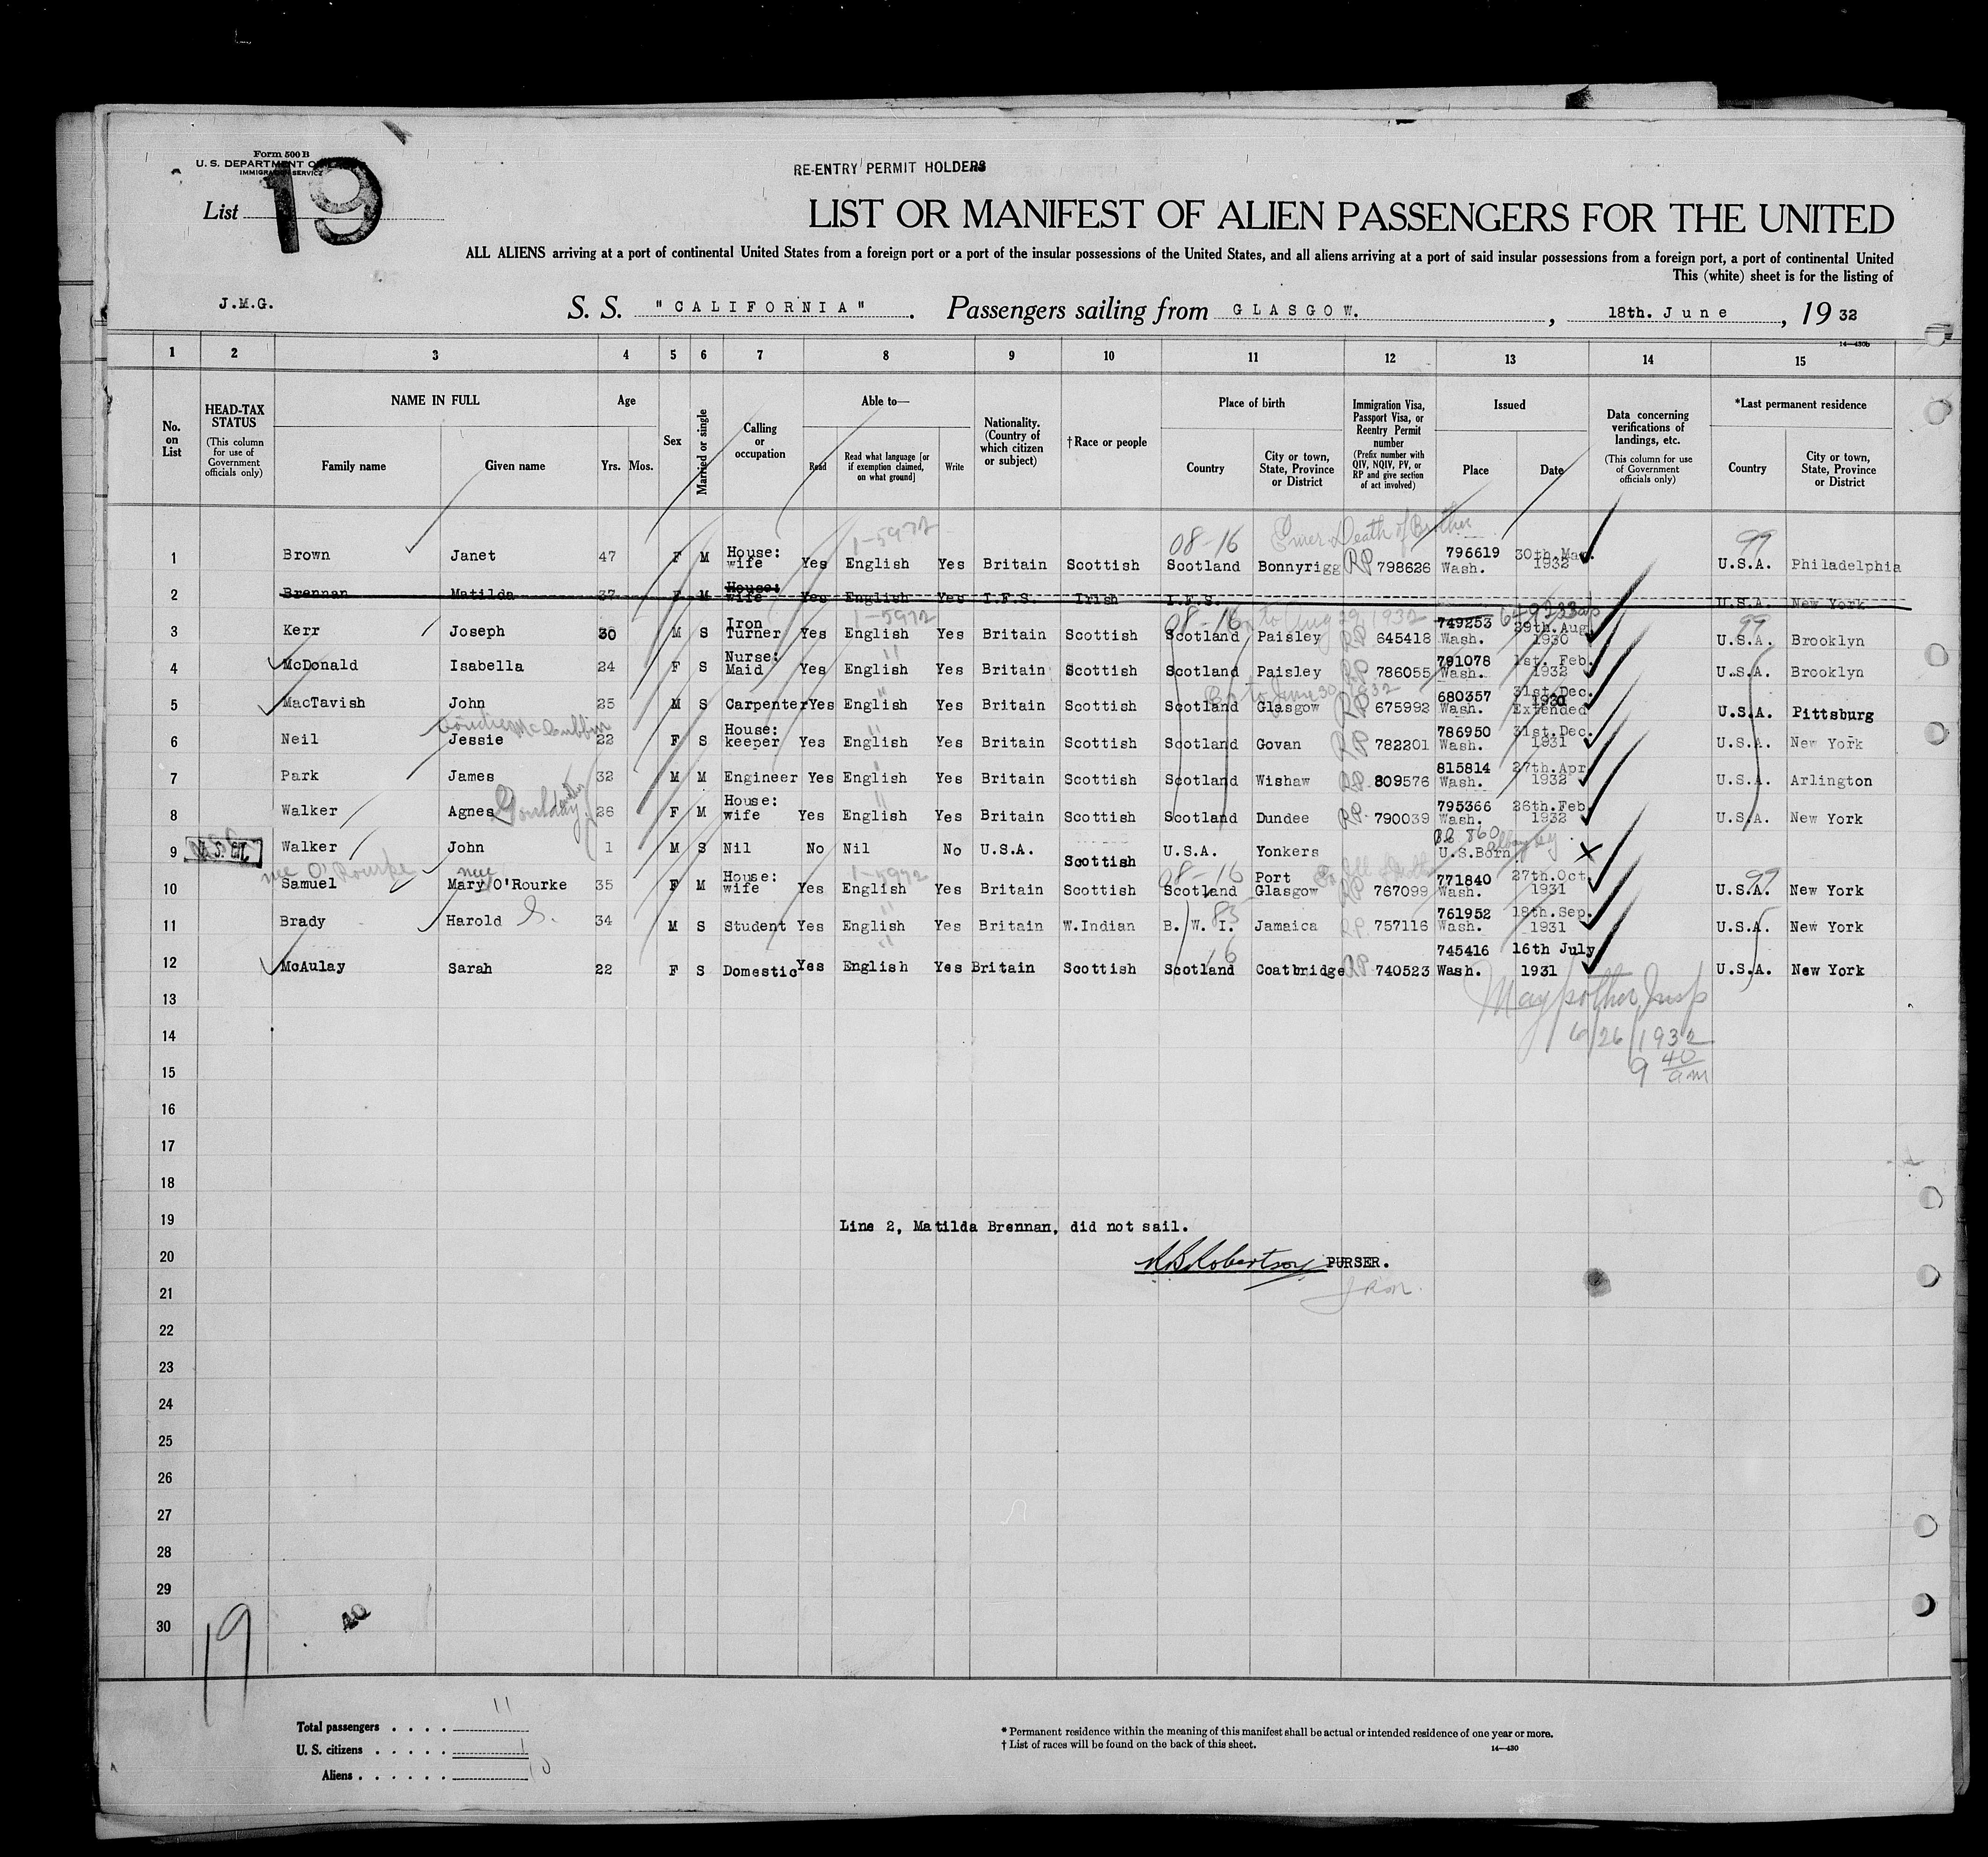 Form 500 B
U. S. DEPARTMENT OF
IMMIGRATION SERVICE
RE-ENTRY PERMIT HOLDERS
List 19
LIST OR MANIFEST OF ALIEN PASSENGERS FOR THE UNITED
ALL ALIENS arriving at a port of continental United States from a foreign port or a port of the insular possessions of the United States, and all aliens arriving at a port of said insular possessions from a foreign port, a port of continental United
This (white) sheet is for the listing of
J.M.G. S. S. "CALIFORNIA". Passengers sailing from GLASGOW., 18th. June, 19 32
14—430b
1 2 3 4 5 6 7 8 9 10 11 12 13 14 15
No. on List
HEAD-TAX STATUS (This column for use of Government officials only)
NAME IN FULL
Family name Given name
Age
Yrs. Mos.
Sex
Married or single
Calling or occupation
Able to—
Read Read what language [or if exemption claimed, on what ground] Write
Nationality. (Country of which citizen or subject)
†Race or people
Place of birth
Country City or town, State, Province or District
Immigration Visa, Passport Visa, or Reentry Permit number (Prefix number with QIV, NQIV, PV, or RP and give section of act involved)
Issued
Place Date
Data concerning verifications of landings, etc. (This column for use of Government officials only)
*Last permanent residence
Country City or town, State, Province or District
1-5972 08-16 Death of Brother 99
1 Brown Janet 47 F M House: wife Yes English Yes Britain Scottish Scotland Bonnyrigg RP 798626 796619 Wash. 30th. May. 1932 U.S.A. Philadelphia
2 Brennan Matilda 37 F M House: wife Yes English Yes I.F.S. Irish I.F.S. U.S.A. New York
1-5972 08-16 to Aug 29, 1932 99
3 Kerr Joseph 30 M S Iron Turner Yes English Yes Britain Scottish Scotland Paisley RP 645418 749253 Wash. 29th. Aug. 1930 U.S.A. Brooklyn
4 McDonald Isabella 24 F S Nurse: Maid Yes English Yes Britain Scottish Scotland Paisley RP 786055 791078 Wash. 1st. Feb. 1932 U.S.A. Brooklyn
to June 30 1932
5 MacTavish John 25 M S Carpenter Yes English Yes Britain Scottish Scotland Glasgow RP 675992 680357 Wash. 31st. Dec. 1930 Extended U.S.A. Pittsburg
6 Neil Jessie 22 F S House: keeper Yes English Yes Britain Scottish Scotland Govan RP 782201 786950 Wash. 31st. Dec. 1931 U.S.A. New York
7 Park James 32 M M Engineer Yes English Yes Britain Scottish Scotland Wishaw RP 809576 815814 Wash. 27th. Apr. 1932 U.S.A. Arlington
8 Walker Agnes 26 F M House: wife Yes English Yes Britain Scottish Scotland Dundee RP 790039 795366 Wash. 26th. Feb. 1932 U.S.A. New York
9 Walker John 1 M S Nil No Nil No U.S.A. Scottish U.S.A. Yonkers U.S. Born
nee O'Rourke nee 1-5972 08-16 99
10 Samuel Mary O'Rourke 35 F M House: wife Yes English Yes Britain Scottish Scotland Port Glasgow RP 767099 771840 Wash. 27th. Oct. 1931 U.S.A. New York
11 Brady Harold S. 34 M S Student Yes English Yes Britain W.Indian B. W. I. 85 Jamaica RP 757116 761952 Wash. 18th. Sep. 1931 U.S.A. New York
12 McAulay Sarah 22 F S Domestic Yes English Yes Britain Scottish Scotland 16 Coatbridge RP 740523 745416 Wash. 16th July 1931 U.S.A. New York
13
14 6/26/1932
15 9 40 am
16
17
18
19 Line 2, Matilda Brennan, did not sail.
20 Robertson PURSER.
21
22
23
24
25
26
27
28
29
30
19 40
Total passengers . . . . 11
U. S. citizens . . . . . 1
Aliens . . . . . . 10
* Permanent residence within the meaning of this manifest shall be actual or intended residence of one year or more.
† List of races will be found on the back of this sheet.
14—430